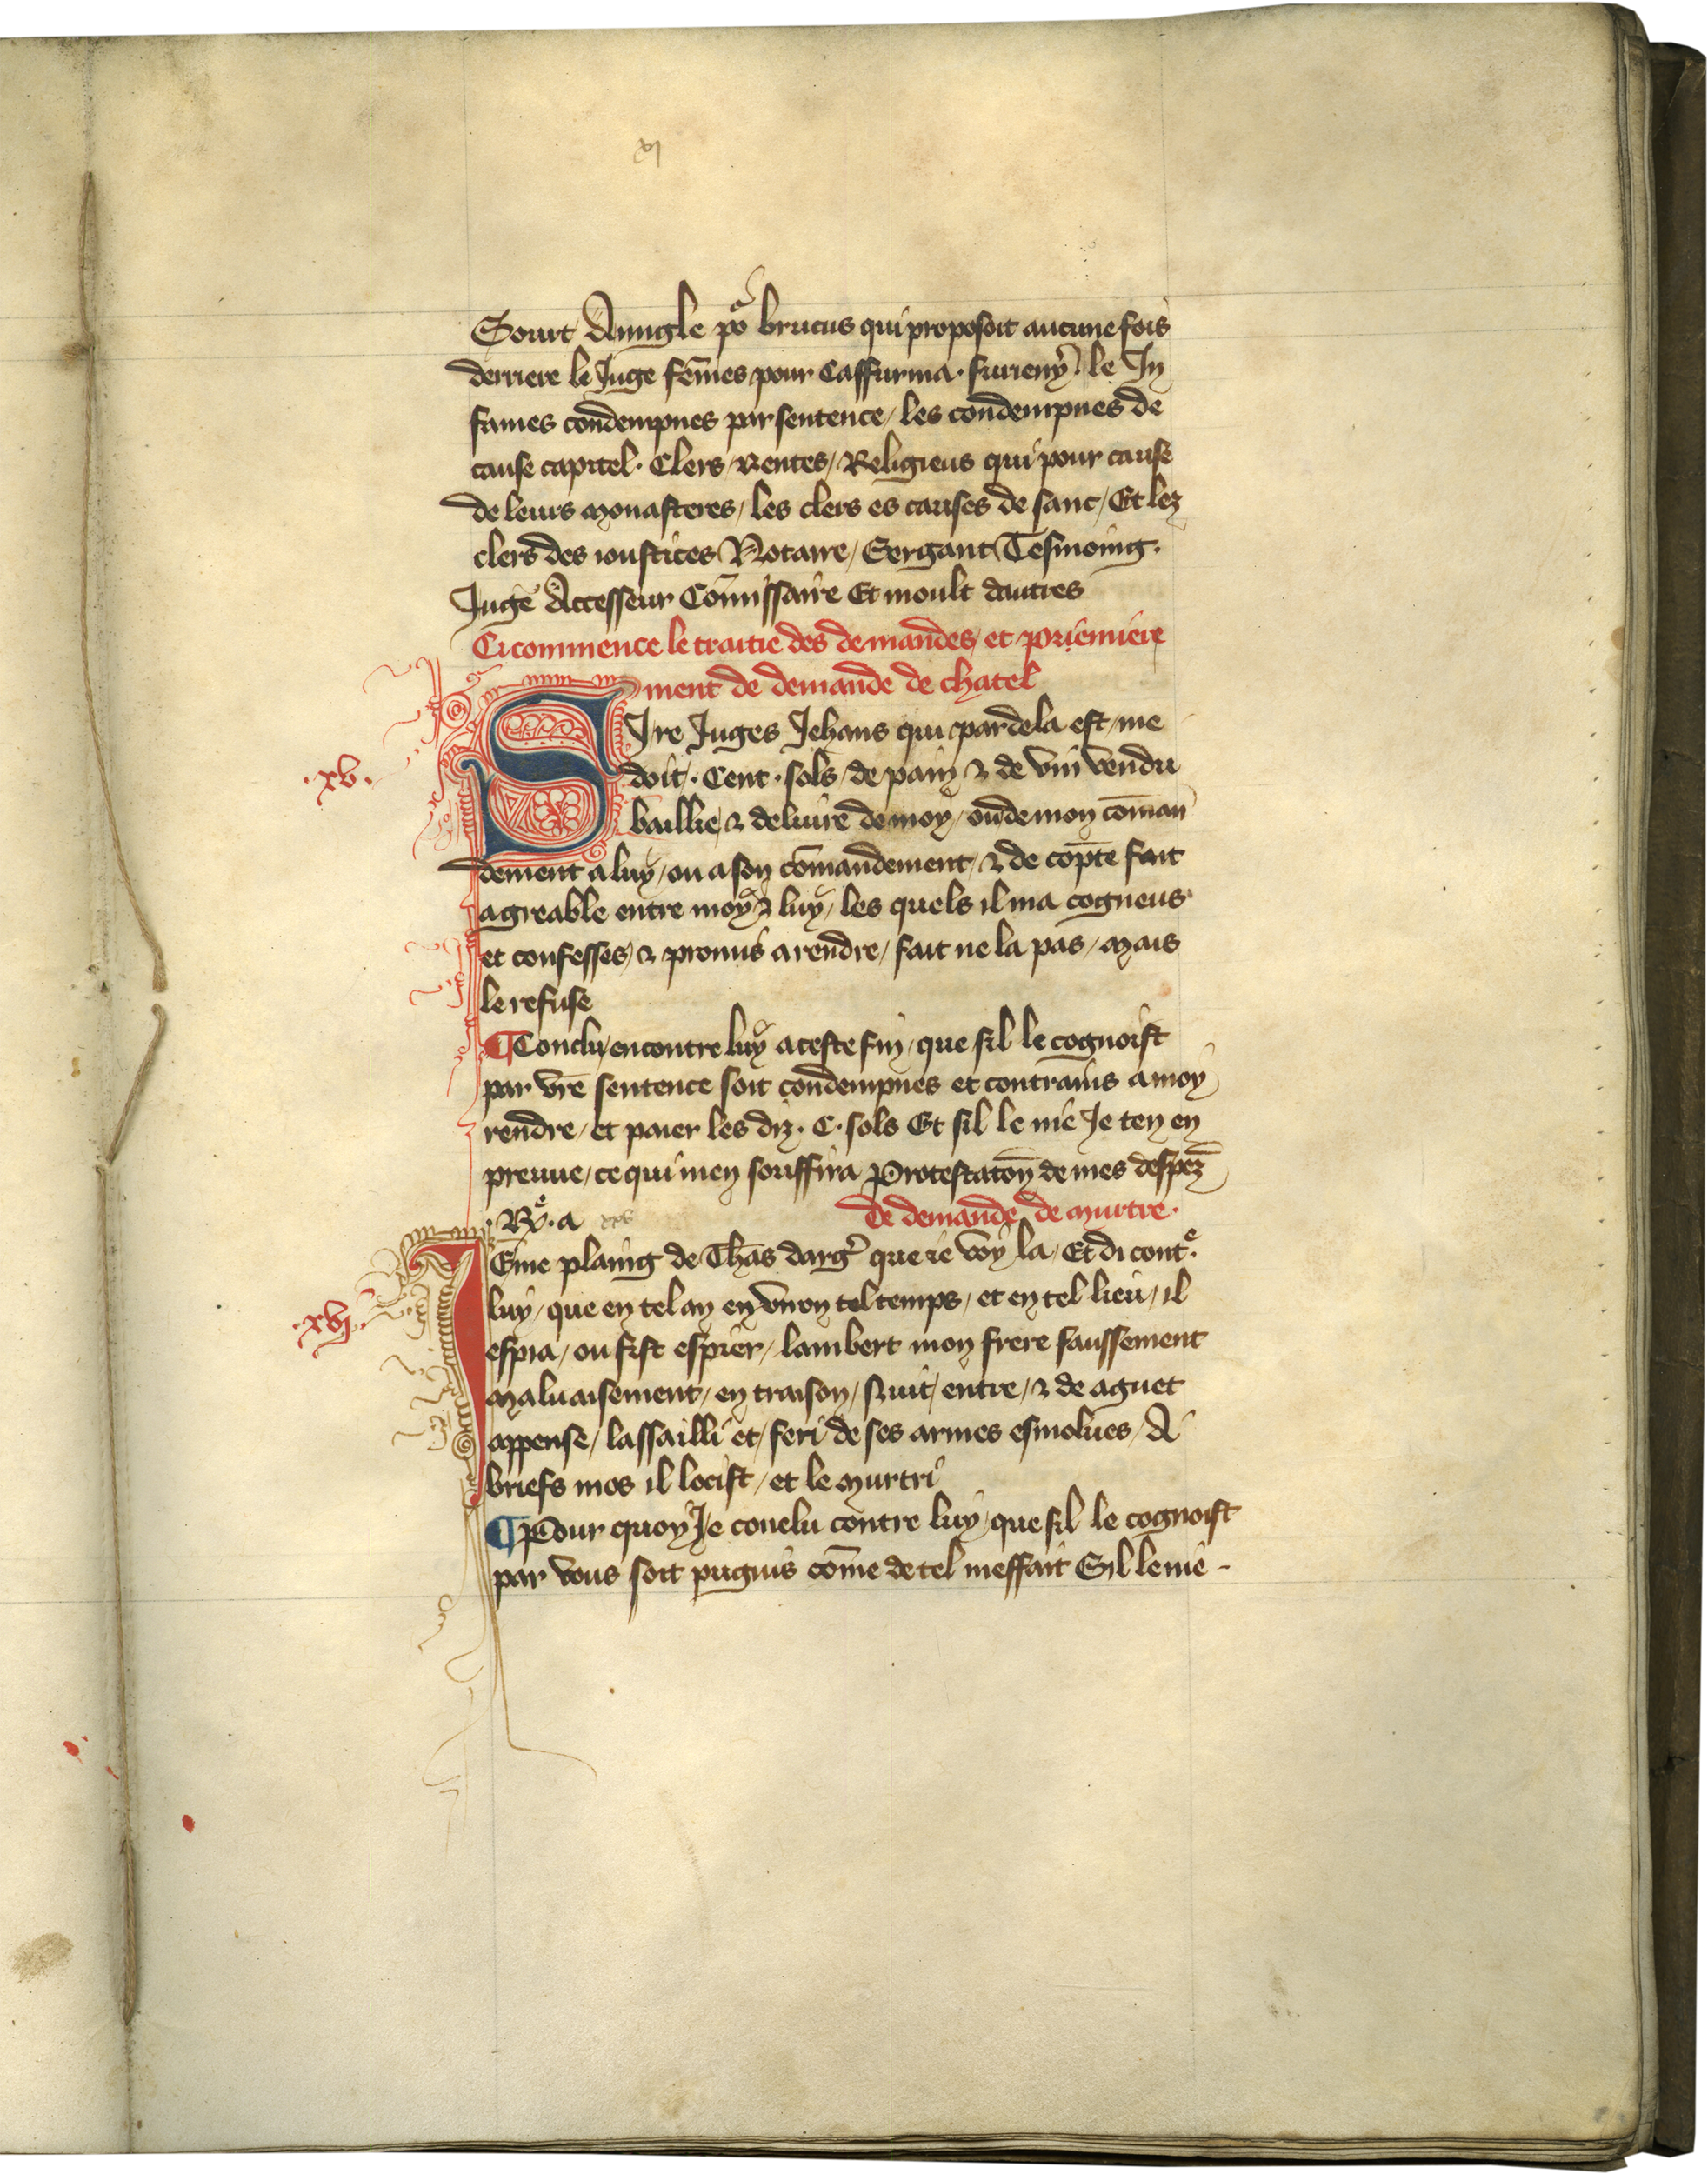 vj
Sourt Aungle po brutus qui proposoit aucune fois
derriere le Juge fem̄es pour Caffurma. furieny le In
fames condempnes par sentence / les condempnes de
cause capitel. Clers / rentes / Religieus qui pour cause
de leurs monasteres / les clers es causes de sanc / Et lez
clers des ioustices Notaire / Sergant Tesmoing.
Juge Accesseur Com̄issaire Et moult dautres
Ci commence le traitie des demandes / et priemiere
ment de demande de chatel
.xv.
SIre Juges Jehans qui par dela est / me
doit. Cent. sols / de pain & de vin vendu
baillie & deliure de moy / ou de mon com̄an
dement a luy / ou a son com̄andement / & de copte fait
agreable entre moy & luy / les quels il ma cogneus
et confesses / & promis a rendre / fait ne la pas / mais
le refuse
¶ Conclu encontre luy a ceste fin / que sil le cognoist
par vr̄e sentence soit condempnes et contrains a moy
rendre / et paier les diz. C. sols Et sil le nie Je ten en
preuue / ce qui men souffira Protestaton de mes despez
. a xvv
de demande de murtre.
.xvj.
JEme plaing de Thās darg̉ que ie voy la / Et di contᵉ.
luy / que en tel an en vnon tel temps / et en tel lieu / il
espia / ou fist espier / lambert mon frere faussement
maluaisement / en traison / nuit / entre / & de aguet
appense / lassailli et / feri de ses armes esmolues / A
briefs mos il locist / et le murtri
¶ Pour quoy Je conclu contre luy / que sil le cognoist
par vous soit pugnis com̄e de tel meffait Sil le nie -